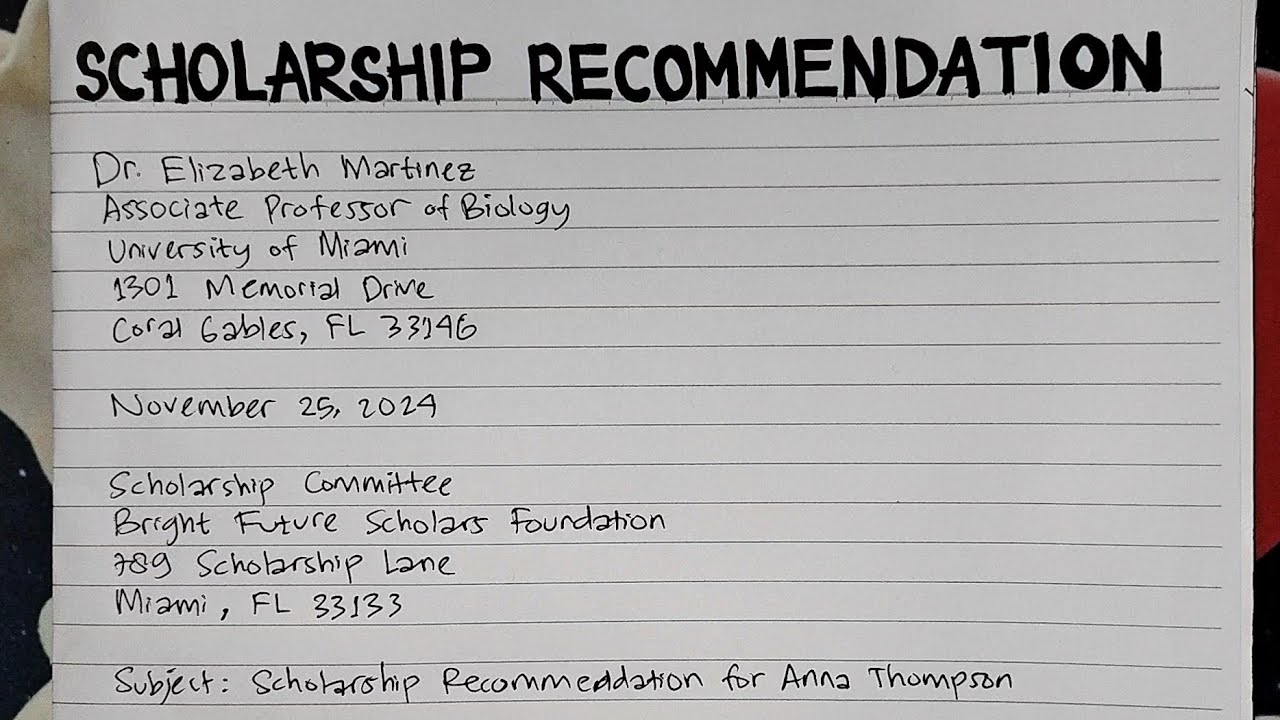 SCHOLARSHIP RECOMMENDATION
Dr. Elizabeth Martinez
Associate Professor of Biology
University of Miami
1301 Memorial Drive
Coral Gables, FL 33146
November 25, 2024
Scholarship Committee
Bright Future Scholars Foundation
789 Scholarship Lane
Miami, FL 33133
Subject: Scholarship Recommeddation for Anna Thompson